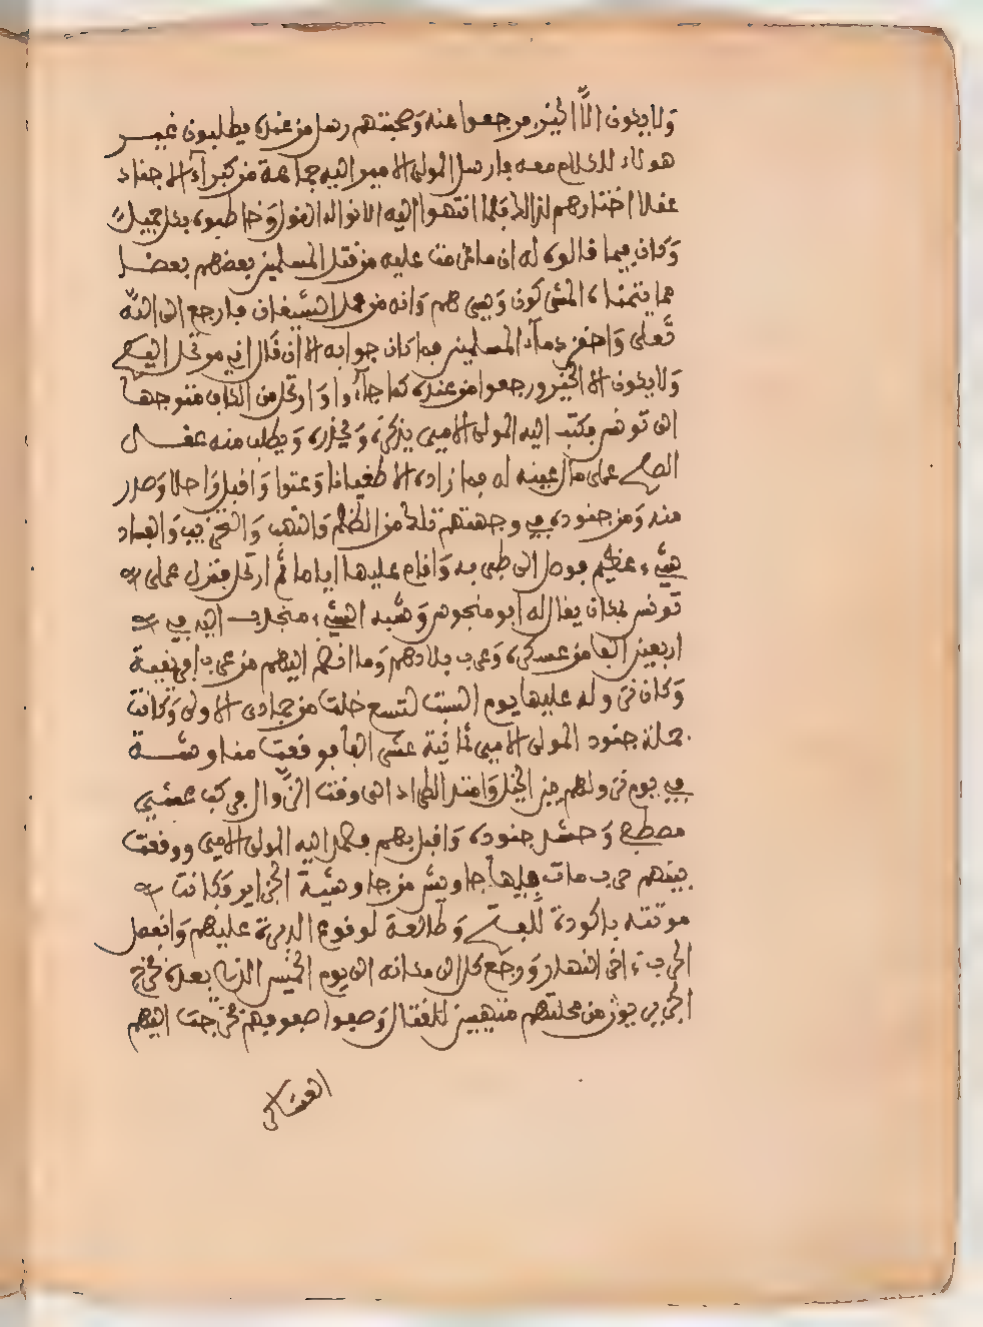 ولا يكون الا الخير فرجعوا عنه وصحبتهم رسل من عنده يطلبون غير
هولاء للكلام معه فارسل المولى الامير اليه جماعة من كبرآء الاجناد
عقلا اختارهم لذالك فلما انتهوا اليه الانوا له القول وخاطبوه بكل جميل
وكان فيما قالوه له ان ما عزمت عليه من قتل المسلمين بعضهم بعضا
مما يتمناه المشركون ويسرهم وانه من عمل الشيطان فارجع الى الله
تعلى واحقن دمآء المسلمين فما كان جوابه الا ان قال اني مرتحل اليكم
ولا يكون الا الخير ورجعوا من عنده كما جآءوا وارتحل من الكاف متوجها
الى تونس فكتب اليه المولى الامير يذكره ويحذره ويطلب منه عقد
الصلح على مال عينه له فما زاده الا طغيانا وعتوا واقبل راحلا وصدر
منه ومن جنوده في وجهتهم تلك من الظلم والنهب والتخريب والفساد
شيء عظيم فوصل الى طبربه واقام عليها اياما ثم ارتحل فنزل على
تونس بمكان يقال له ابو منجوس وشبه الشيء منجذب اليه في
اربعين الفا من عسكره وعرب بلادهم وما انضم اليهم من عرب افريقية
وكان نزوله عليها يوم السبت لتسع خلت من جمادى الاولى وكانت
جملة جنود المولى الامير ثمانية عشر الفا فوقعت مناوشة
في يوم نزولهم بين الخيل وامتد الطراد الى وقت الزوال فركب عشي
مصطفى وحشد جنوده واقبل بهم فحمل اليه المولى الامير ووقعت
بينهم حرب مات فيها جاويش من جاوشية الجزاير وكانت
موتته باكورة للفتح وطالعة لوقوع الدبرة عليهم وانفصل
الحرب ءاخر النهار ورجع كل الى مكانه الى يوم الخميس الذي بعده فخرج
الجزيريون من محلتهم متهيين للقتال وصفوا صفوفهم فخرجت اليهم
العساكر